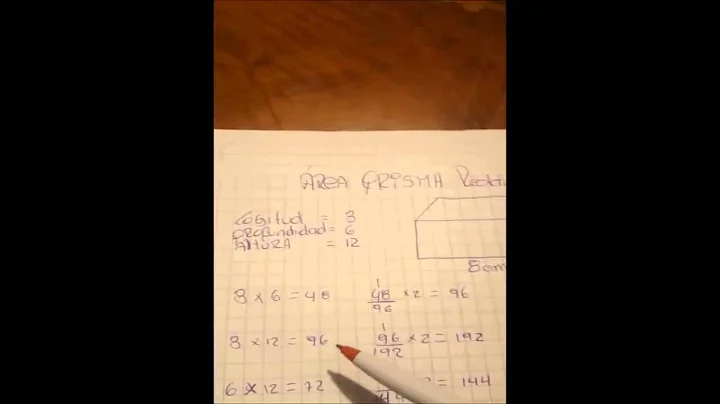 ÁREA PRISMA Recta
Logitud = 8
profundidad = 6
AltURA = 12
8 cm
8 x 6 = 48
48 x 2 = 96
96
8 x 12 = 96
1
96 x 2 = 192
192
6 x 12 = 72
= 144